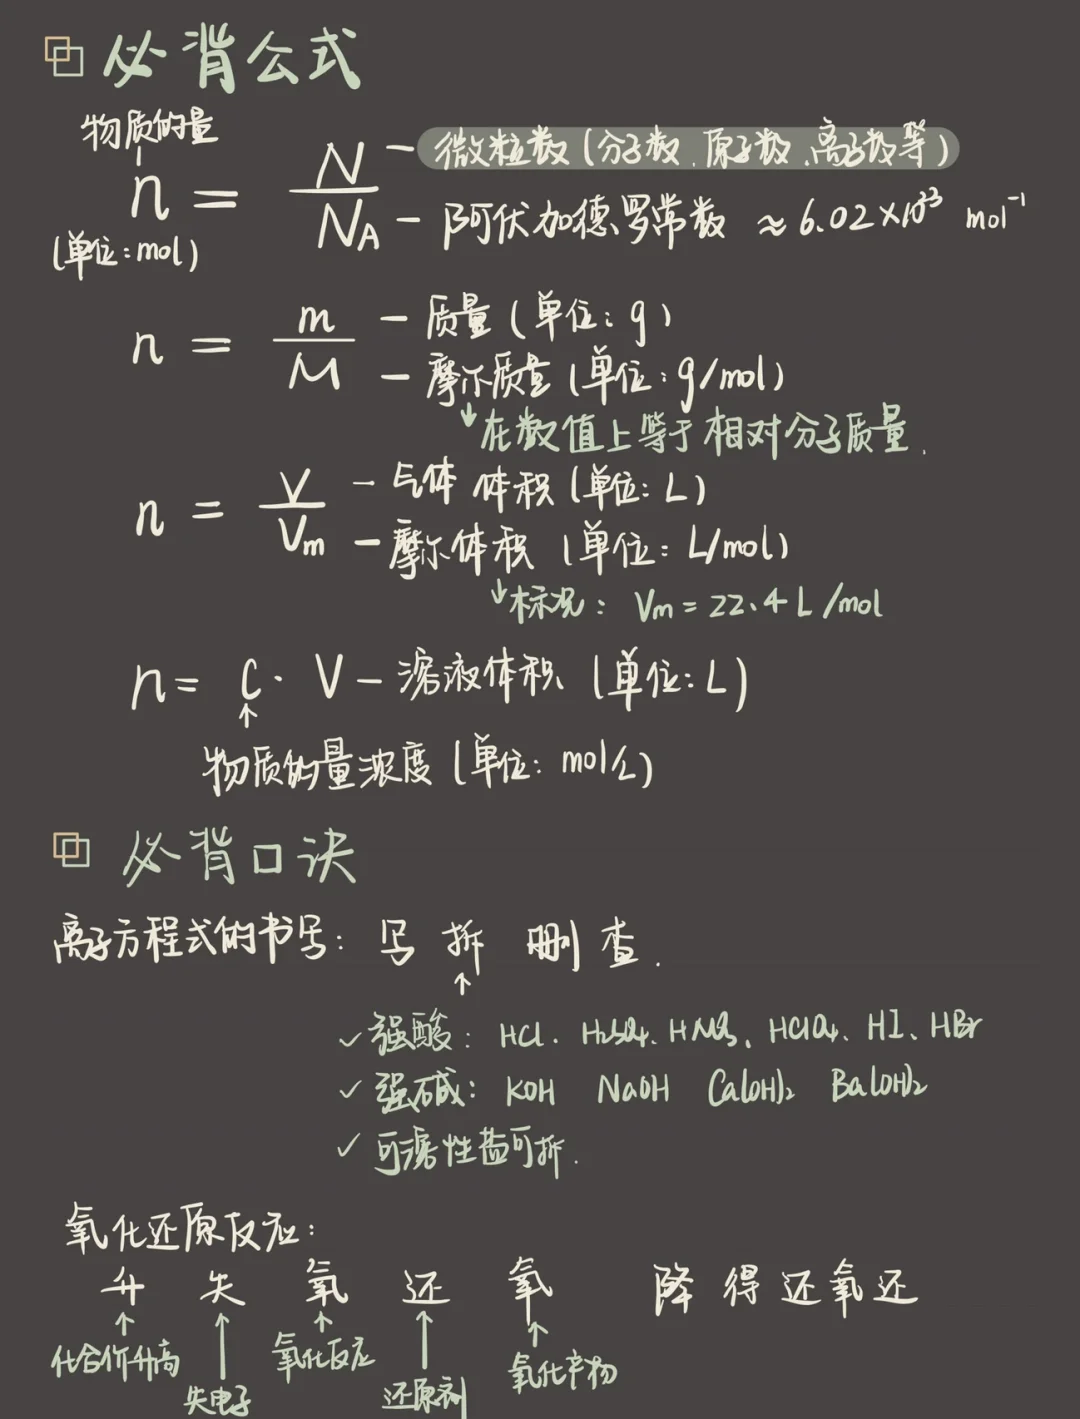 必背公式
物质的量
n = N/NA
— 微粒数(分子数、原子数、离子数等)
— 阿伏加德罗常数 ≈ 6.02×10²³ mol⁻¹
(单位:mol)
n = m/M
— 质量(单位:g)
— 摩尔质量(单位:g/mol)
↓在数值上等于相对分子质量.
n = V/Vm
— 气体体积(单位:L)
— 摩尔体积(单位:L/mol)
↓标况:Vm=22.4L/mol
n= C·V — 溶液体积(单位:L)
↑
物质的量浓度(单位:mol/L)
必背口诀
离子方程式的书写:写 拆 删 查.
↑
✓强酸:HCl、H₂SO₄、HNO₃、HClO₄、HI、HBr
✓强碱:KOH NaOH Ca(OH)₂ Ba(OH)₂
✓可溶性盐可拆.
氧化还原反应:
升 失 氧 还 氧 降得还氧还
↑ ↑ ↑ ↑ ↑
化合价升高 失电子 氧化反应 还原剂 氧化产物